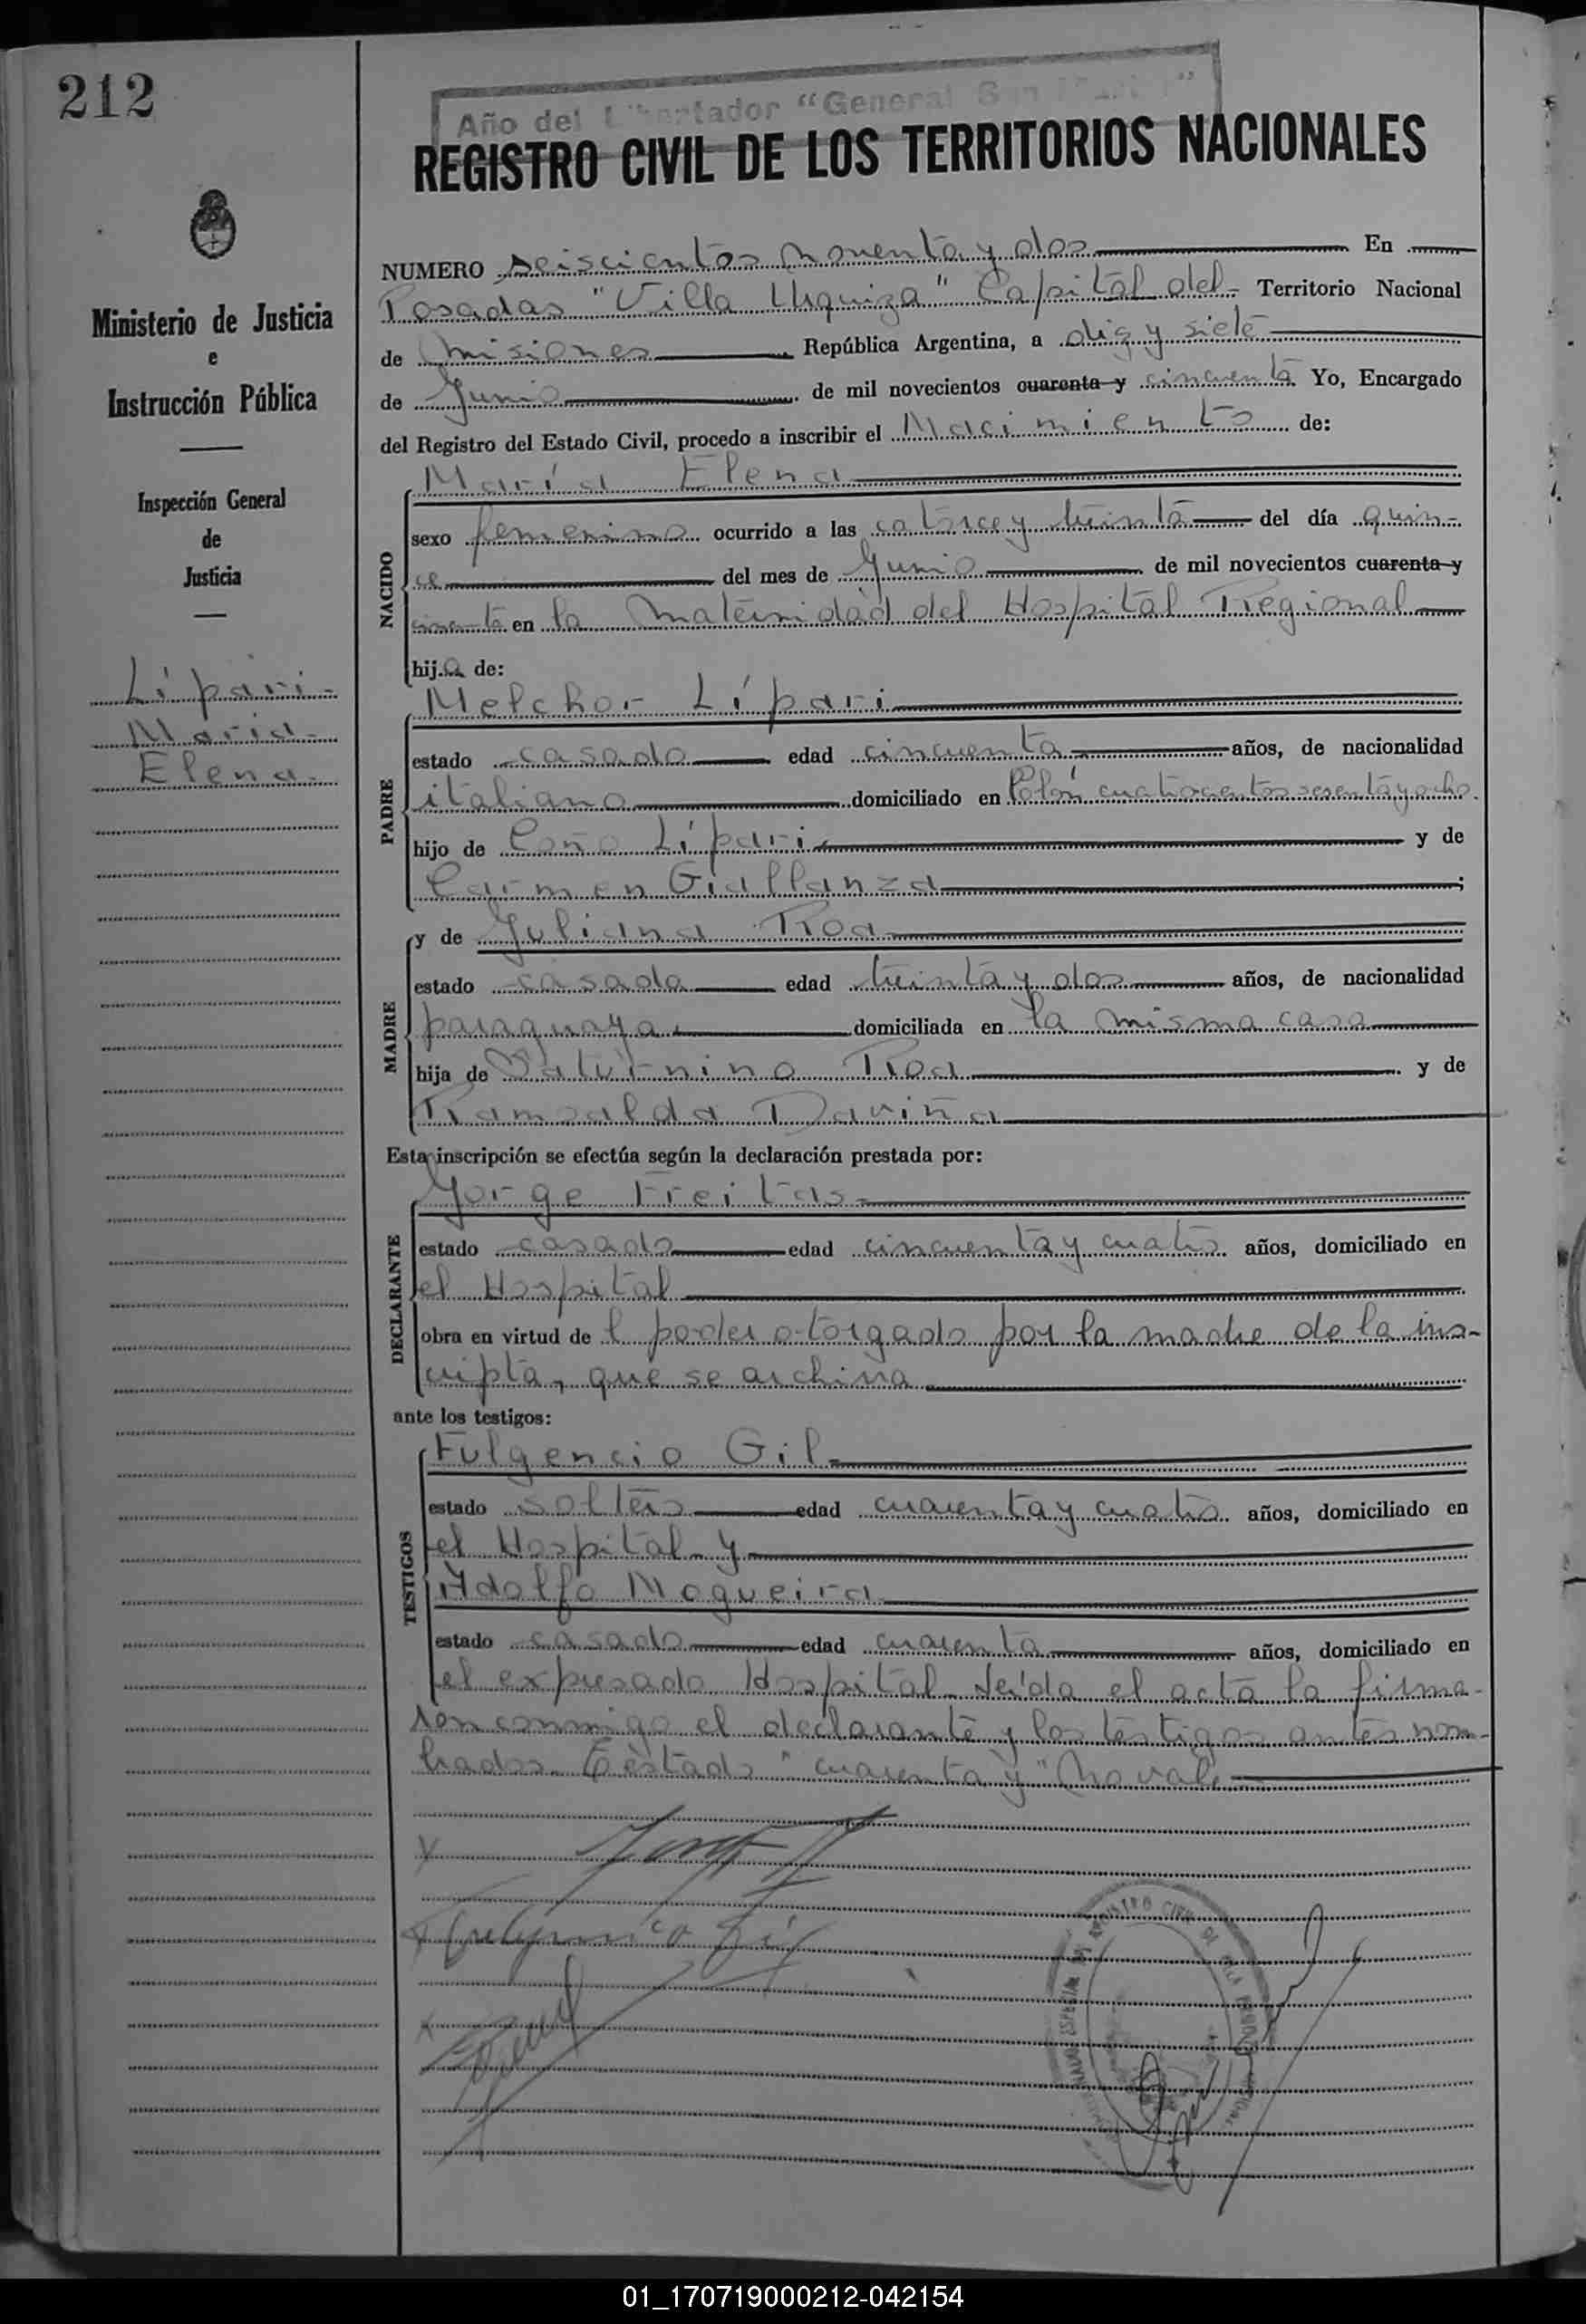 212
Año del Libertador "General San Martín"
REGISTRO CIVIL DE LOS TERRITORIOS NACIONALES
Ministerio de Justicia
e
Instrucción Pública
Inspección General
de
Justicia
Lípari
María
Elena
NUMERO seiscientos noventa y dos En
Posadas "Villa Urquiza" Capital del Territorio Nacional
de Misiones República Argentina, a diez y siete
de Junio de mil novecientos cuarenta y cincuenta Yo, Encargado
del Registro del Estado Civil, procedo a inscribir el Nacimiento de:
NACIDO
María Elena
sexo femenino ocurrido a las catorce y treinta del día quin-
ce del mes de Junio de mil novecientos cuarenta y
cincuenta en la maternidad del Hospital Regional
hija de:
PADRE
Melchor Lípari
estado casado edad cincuenta años, de nacionalidad
italiano domiciliado en Colón cuatrocientos sesenta y ocho
hijo de Lípari y de
Carmen Giallanza ;
MADRE
y de Juliana Roa
estado casada edad treinta y dos años, de nacionalidad
paraguaya domiciliada en la misma casa
hija de Saturnino Roa y de
Daviña
Esta inscripción se efectúa según la declaración prestada por:
DECLARANTE
Jorge Freitas
estado casado edad cincuenta y cuatro años, domiciliado en
el Hospital
obra en virtud de l poder otorgado por la madre de la ins-
cripta, que se archiva
ante los testigos:
TESTIGOS
Fulgencio Gil
estado soltero edad cuarenta y cuatro años, domiciliado en
el Hospital y
Adolfo Nogueira
estado casado edad cuarenta años, domiciliado en
el expresado Hospital. Leída el acta la firma-
ron conmigo el declarante y los testigos antes nom-
brados. Testado "cuarenta y" No vale
Fulgencio Gil
01_170719000212-042154